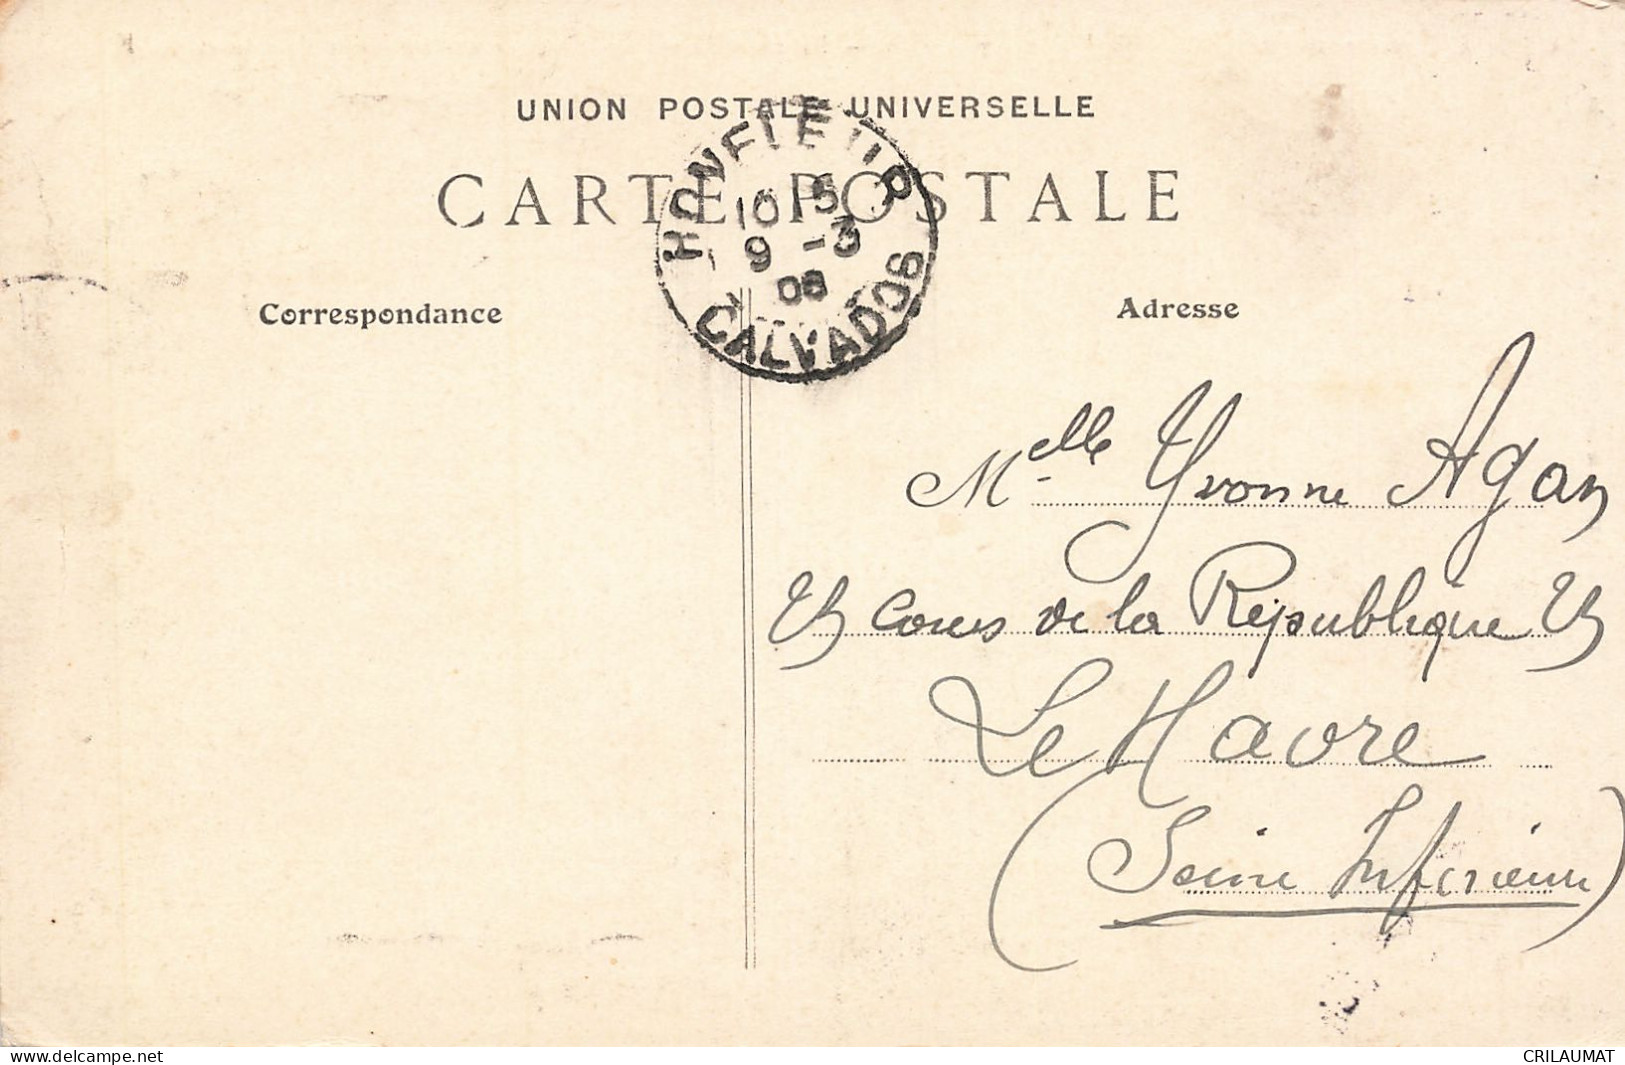 UNION POSTALE UNIVERSELLE
CARTE POSTALE
HONFLEUR
10 15
9 -3
08
CALVADOS
Correspondance
Adresse
Melle Yvonne Agan
Cours de la République
Le Havre
(Seine Inférieure)
www.delcampe.net
CRILAUMAT